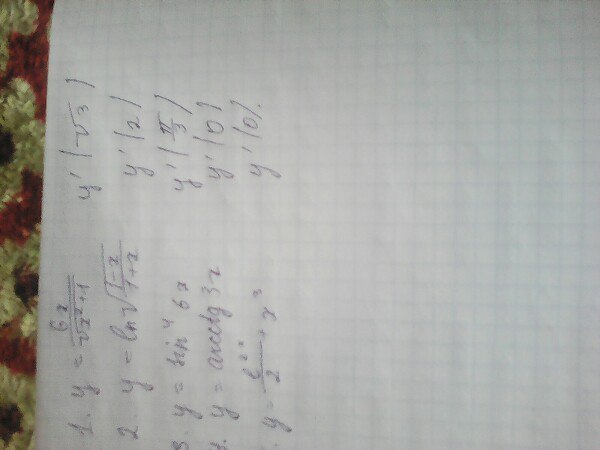 1. y = 6x/√(x²+1)   y'(-√3)
2. y = ln√((1-x)/(1+x))   y'(2)
3. y = sin⁴ 6x   y'(π/3)
y = arcctg 3x   y'(0)
y = e²ˣ/2 + x³   y'(0).